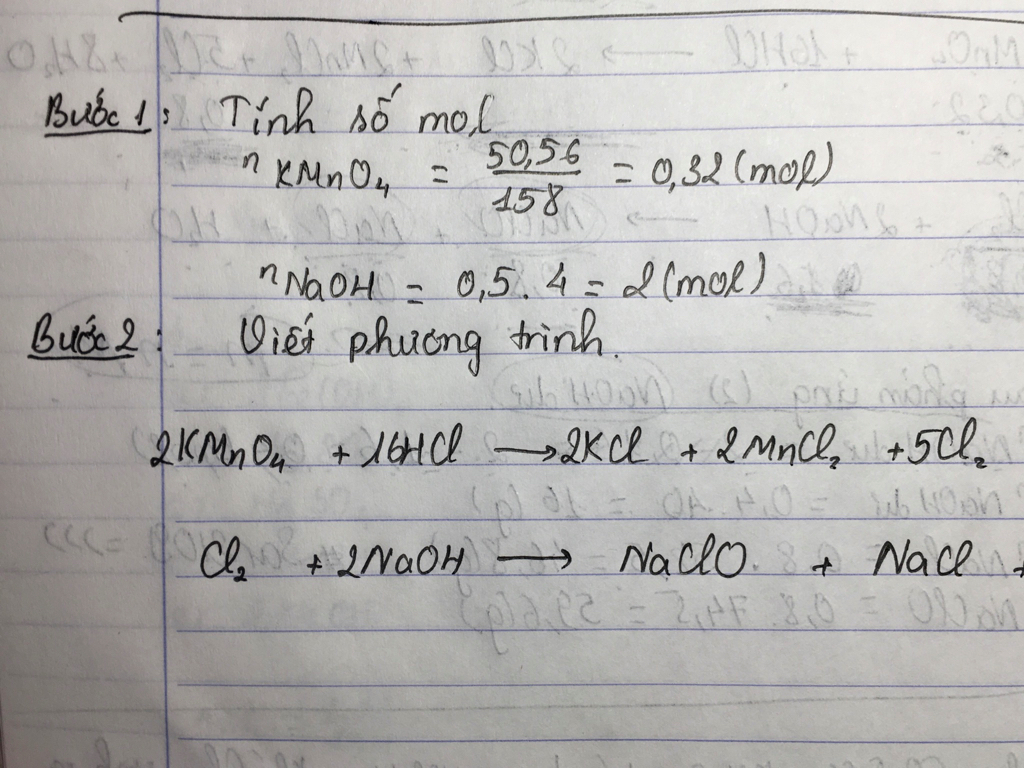 Bước 1: Tính số mol
nKMnO₄ = 50,56/158 = 0,32 (mol)
nNaOH = 0,5. 4 = 2 (mol)
Bước 2: Viết phương trình.
2KMnO₄ + 16HCl → 2KCl + 2MnCl₂ + 5Cl₂
Cl₂ + 2NaOH → NaClO + NaCl +